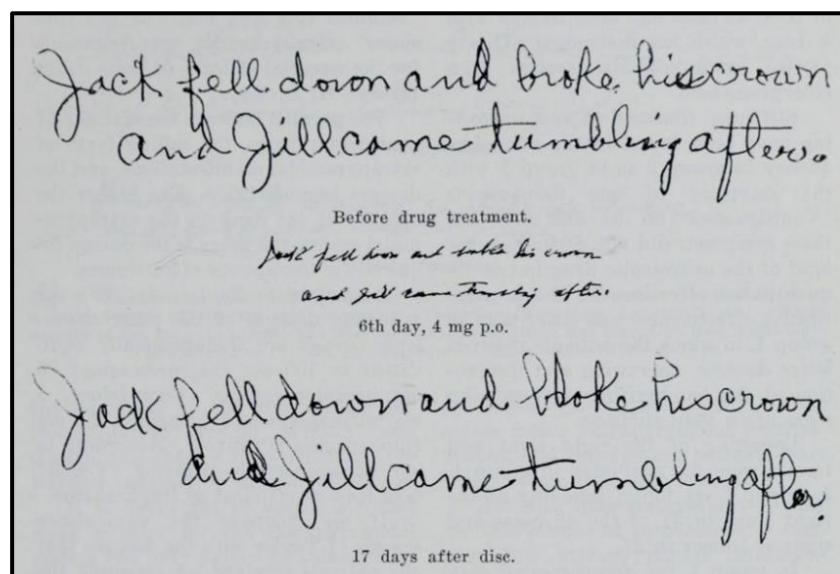 Jack fell down and broke his crown
and Jill came tumbling after.
Before drug treatment.
Jack fell down and broke his crown
and Jill came tumbling after.
6th day, 4 mg p.o.
Jack fell down and bloke his crown
and Jill came tumbling after.
17 days after disc.